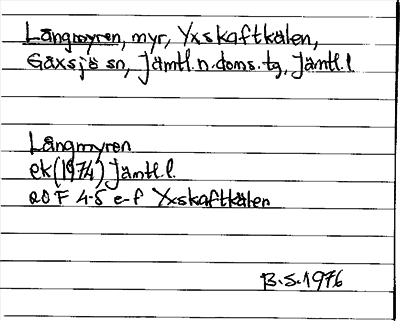 Långmyren, myr, Yxskaftkälen,
Gåxsjö sn, Jämtl.n.doms.tg, Jämtl.l
Långmyren
ek(1974) Jämtl.l.
20 F 4-5 e-f Yxskaftkälen
B.S.1976